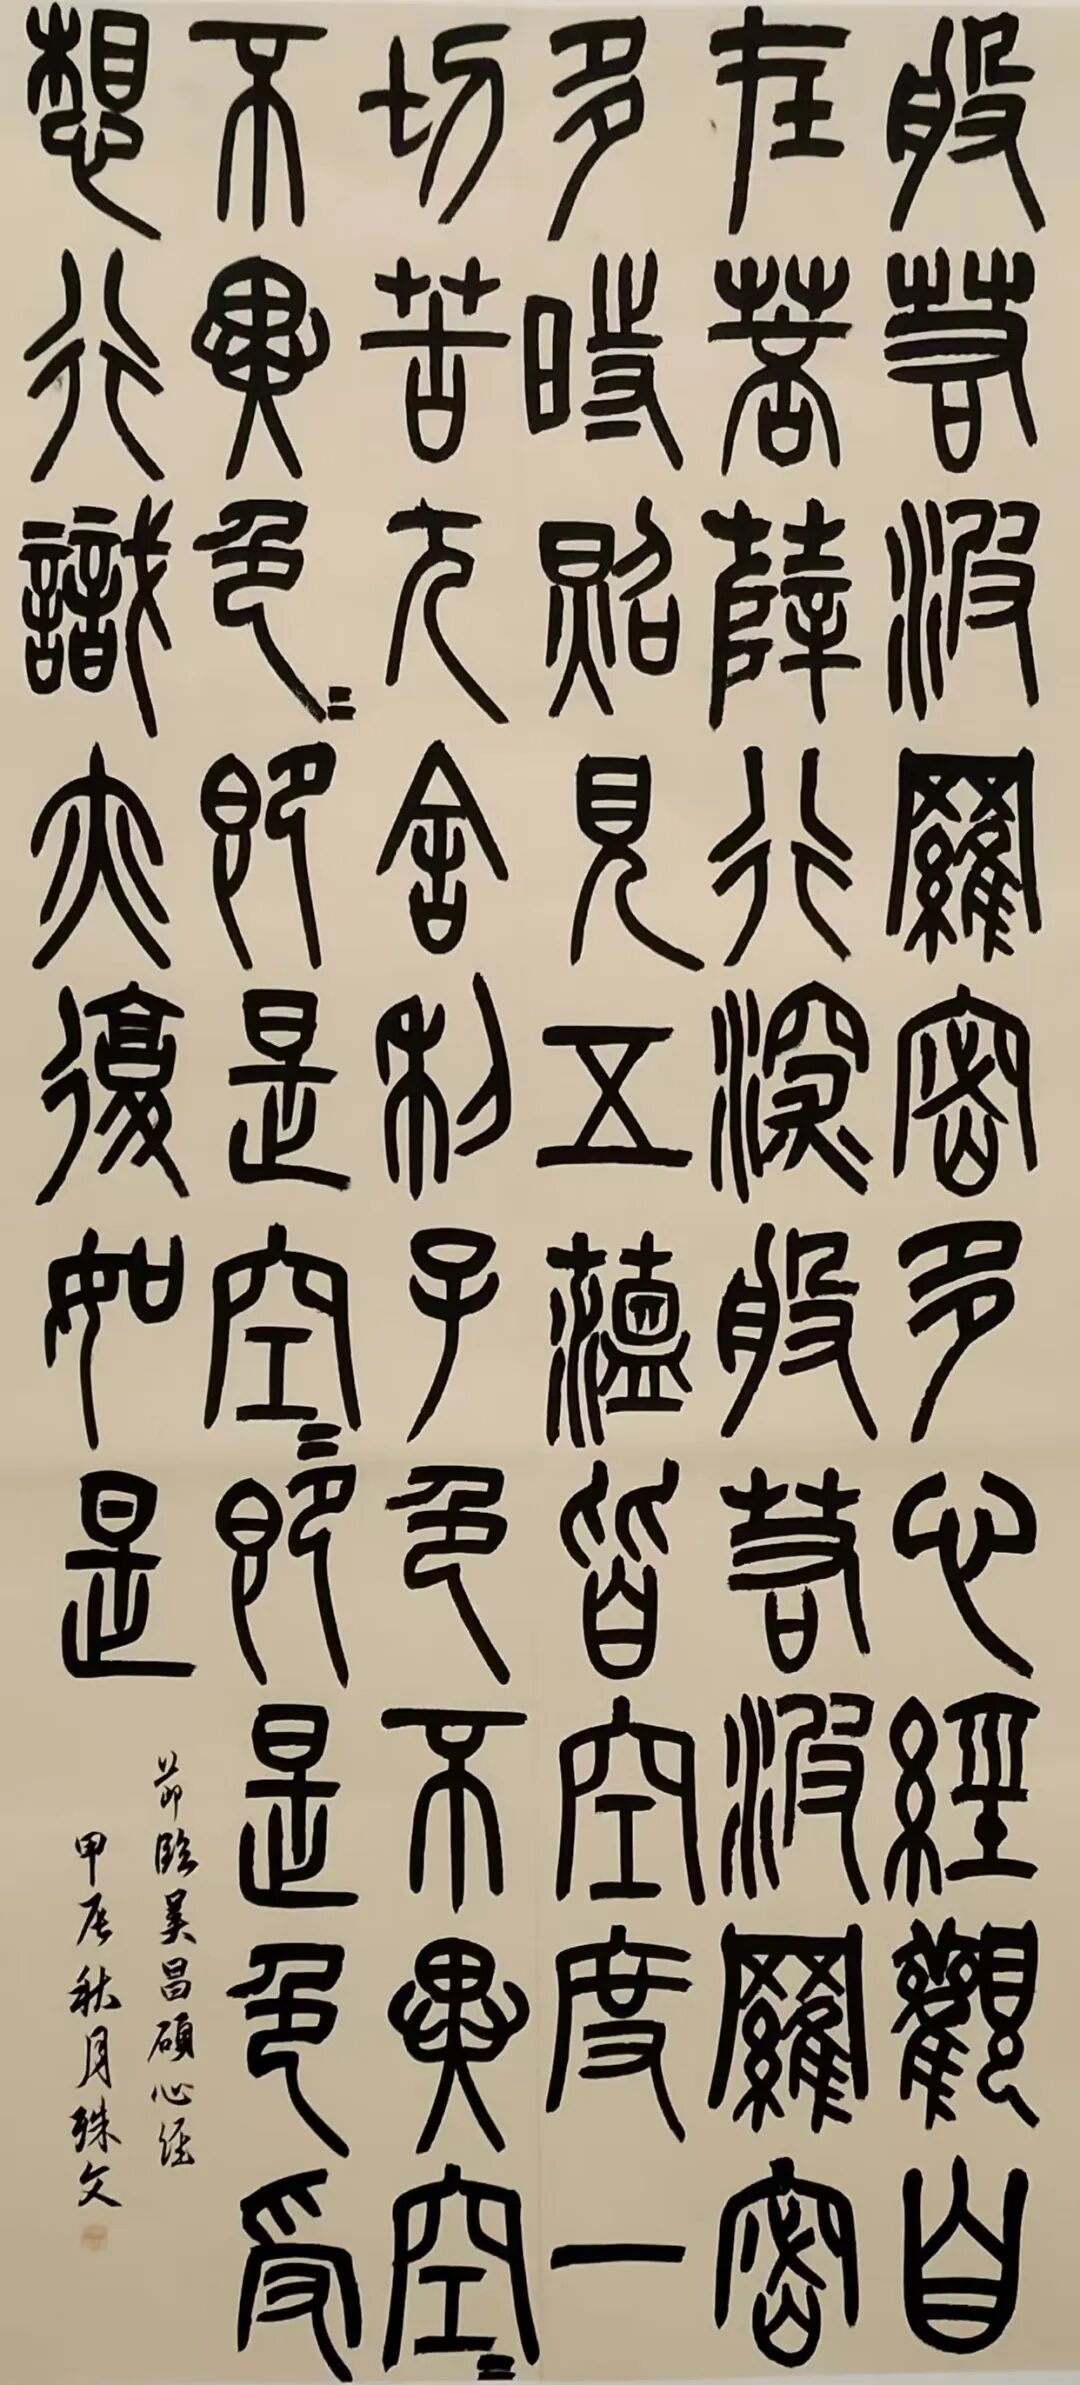 般若波羅密多心經觀自
在菩薩行深般若波羅密
多時照見五蘊皆空度一
切苦厄舍利子色不異空〻
不異色〻即是空〻即是色受
想行識亦復如是
節臨吳昌碩心經
甲辰秋月殊文